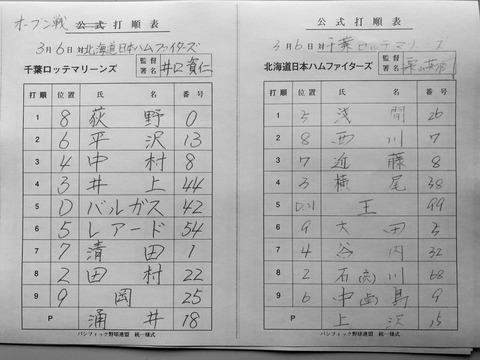 オープン戦 公式打順表
3月6日対北海道日本ハムファイターズ
千葉ロッテマリーンズ 監督署名 井口資仁
打順 位置 氏名 番号
1 8 荻野 0
2 6 平沢 13
3 4 中村 8
4 3 井上 44
5 D バルガス 42
6 5 レアード 54
7 7 清田 1
8 2 田村 22
9 9 岡 25
P 涌井 18
パシフィック野球連盟 統一様式
公式打順表
3月6日対千葉ロッテマリーンズ
北海道日本ハムファイターズ 監督署名
打順 位置 氏名 番号
1 5 浅間 26
2 8 西川 7
3 7 近藤 8
4 3 横尾 38
5 D.H 王 99
6 9 大田 5
7 4 谷内 32
8 2 石川(亮) 68
9 6 中島 9
P 上沢 15
パシフィック野球連盟 統一様式